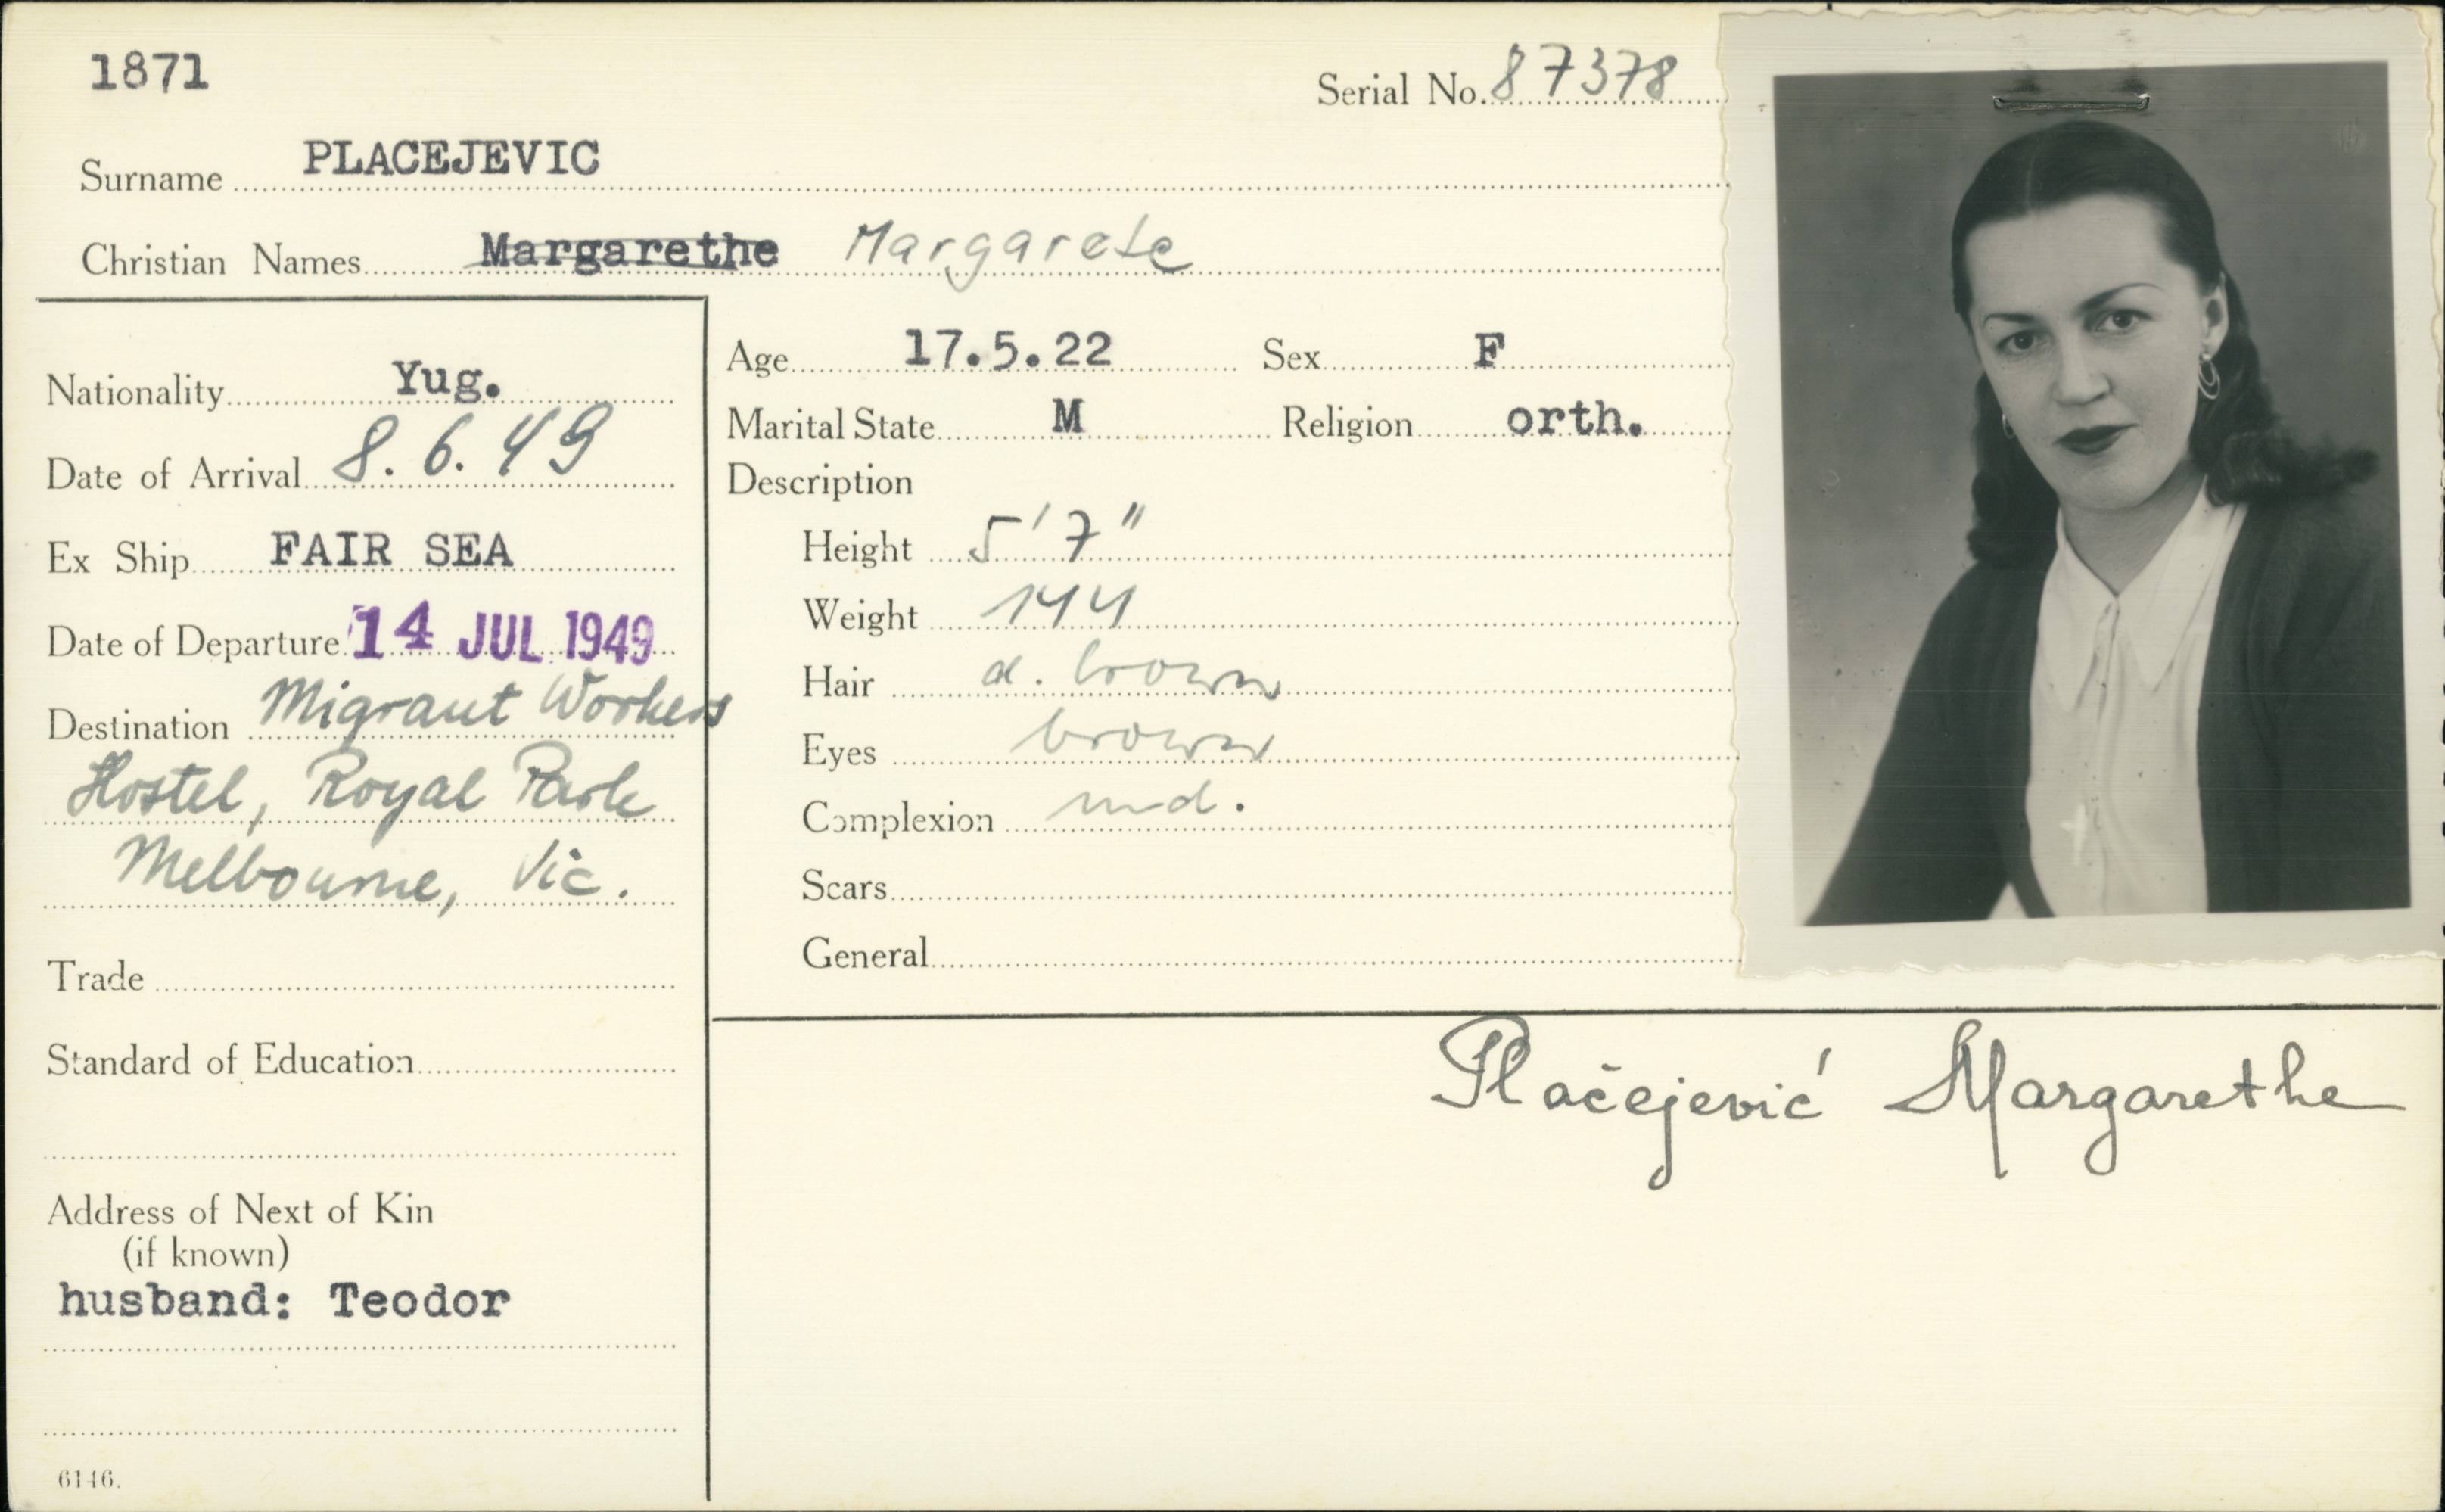 1871
Serial No. 87378
Surname PLACEJEVIC
Christian Names Margarethe Margarete
Nationality Yug.
Date of Arrival 8.6.49
Ex Ship FAIR SEA
Date of Departure 14 JUL 1949
Destination Migrant Workers
Hostel, Royal Park
Melbourne, Vic.
Trade
Standard of Education
Address of Next of Kin
(if known)
husband: Teodor
6146.
Age 17.5.22 Sex F
Marital State M Religion orth.
Description
Height 5'7"
Weight 144
Hair d. brown
Eyes brown
Complexion md.
Scars
General
Plačejević Margarethe